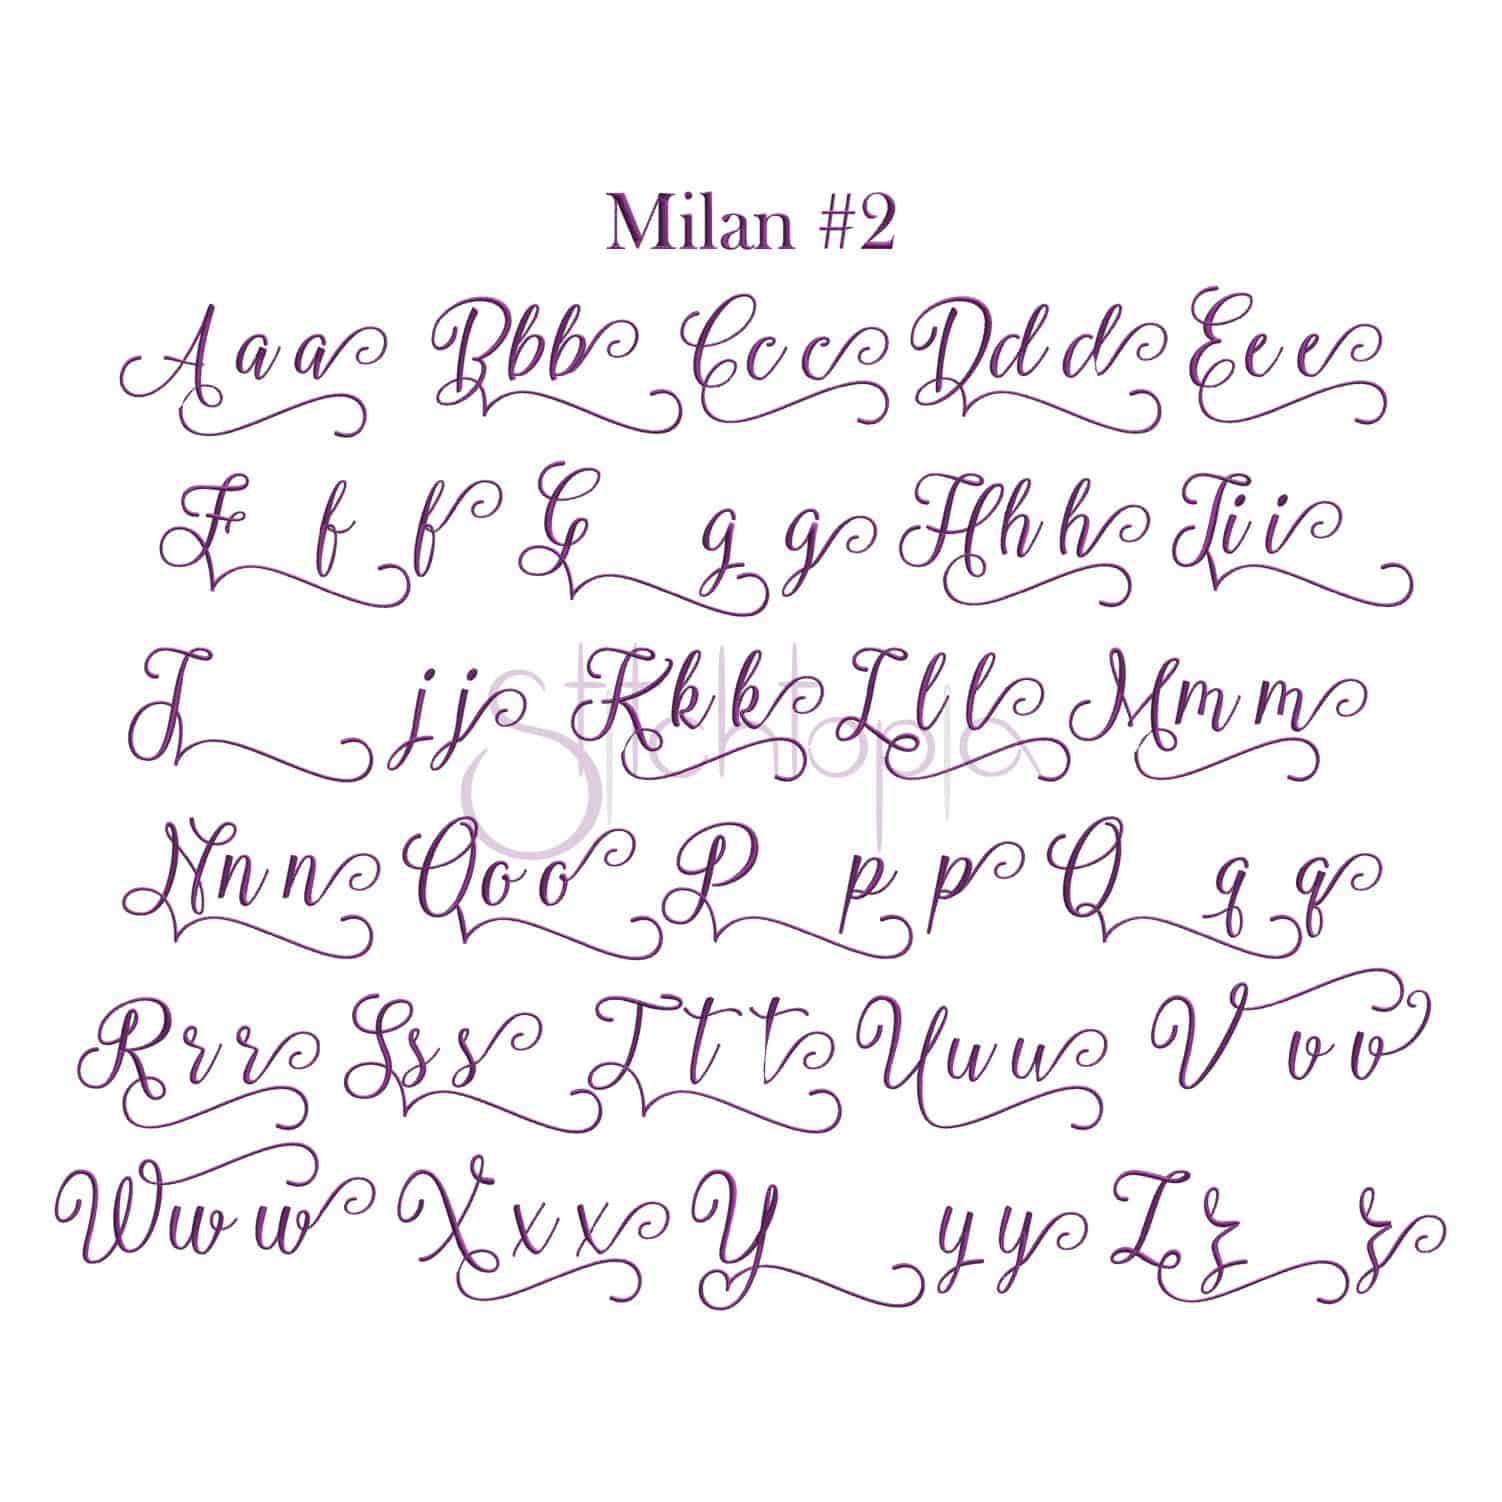 Milan #2
Aaa Bbb Ccc Ddd Eee
F f f G g g Hhh Iii
J jj Kkk Lll Mmm
Nnn Ooo P p p Q q q
Rrr Sss Ttt Uuu V vv
Www Xxx Y yy Zz z
Stitchtopia